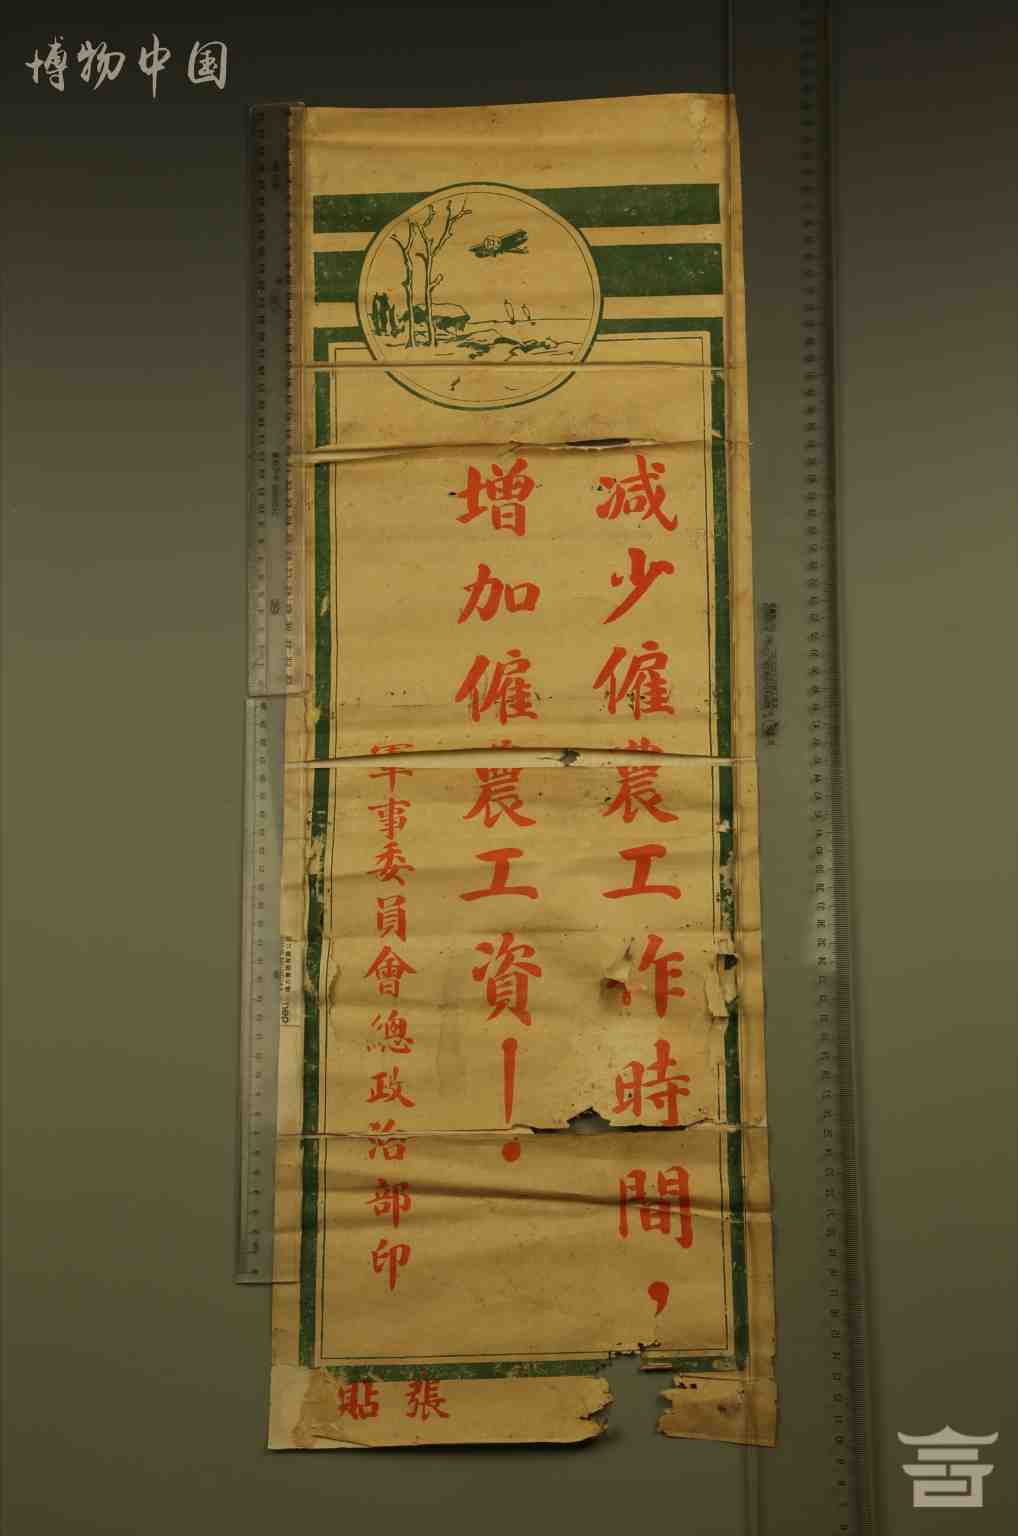 博物中国
減少僱農工作時間，
增加僱農工資！
軍事委員會總政治部印
張貼
deli